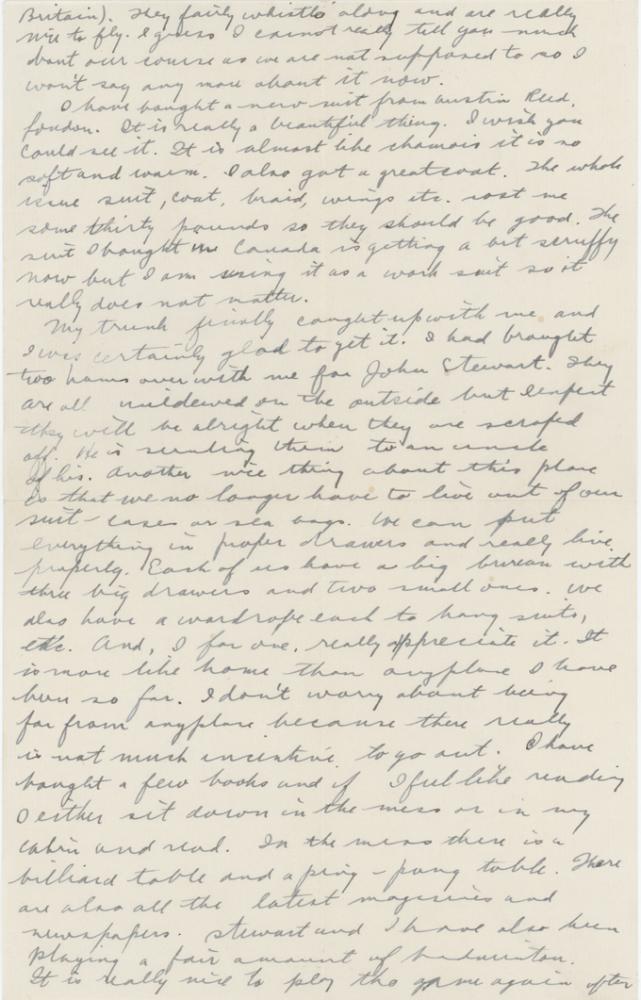 Britain). They fairly whistle along and are really
nice to fly. I guess I cannot really tell you much
about our course as we are not supposed to so I
won't say any more about it now.
I have bought a new suit from Austin Reed,
London. It is really a beautiful thing. I wish you
could see it. It is almost like chamois it is so
soft and warm. I also got a greatcoat. The whole
issue suit, coat, braid, wings etc. cost me
some thirty pounds so they should be good. The
suit I bought in Canada is getting a bit scruffy
now but I am using it as a work suit so it
really does not matter.
My trunk finally caught up with me and
I was certainly glad to get it. I had brought
two hams over with me for John Stewart. They
are all mildewed on the outside but I expect
they will be alright when they are scraped
off. He is sending them to an uncle
of his. Another nice thing about this place
is that we no longer have to live out of our
suit-cases or sea bags. We can put
everything in proper drawers and really live
properly. Each of us have a big bureau with
three big drawers and two small ones. We
also have a wardrobe each to hang suits,
etc. And, I for one, really appreciate it. It
is more like home than anyplace I have
been so far. I don't worry about being
far from anyplace because there really
is not much incentive to go out. I have
bought a few books and if I feel like reading
I either sit down in the mess or in my
cabin and read. In the mess there is a
billiard table and a ping-pong table. There
are also all the latest magazines and
newspapers. Stewart and I have also been
playing a fair amount of badminton.
It is really nice to play the game again after